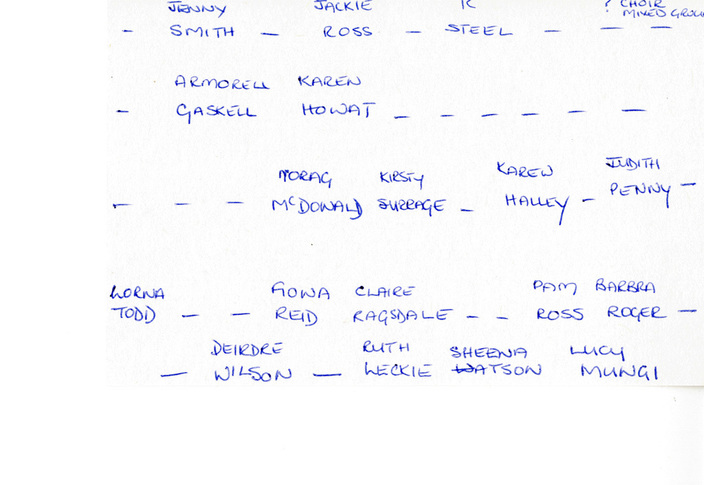 JENNY JACKIE K ? CHOIR
MIXED GROUP
- SMITH - ROSS - STEEL - - -
ARMORELL KAREN
- GASKELL HOWAT - - - - -
MORAG KIRSTY KAREN JUDITH
- - - McDONALD SURRAGE - HALLEY - PENNY -
LORNA FIONA CLAIRE PAM BARBRA
TODD - - REID RAGSDALE - - ROSS ROGER -
DEIRDRE RUTH SHEENA LUCY
- WILSON - LECKIE WATSON MUNGI